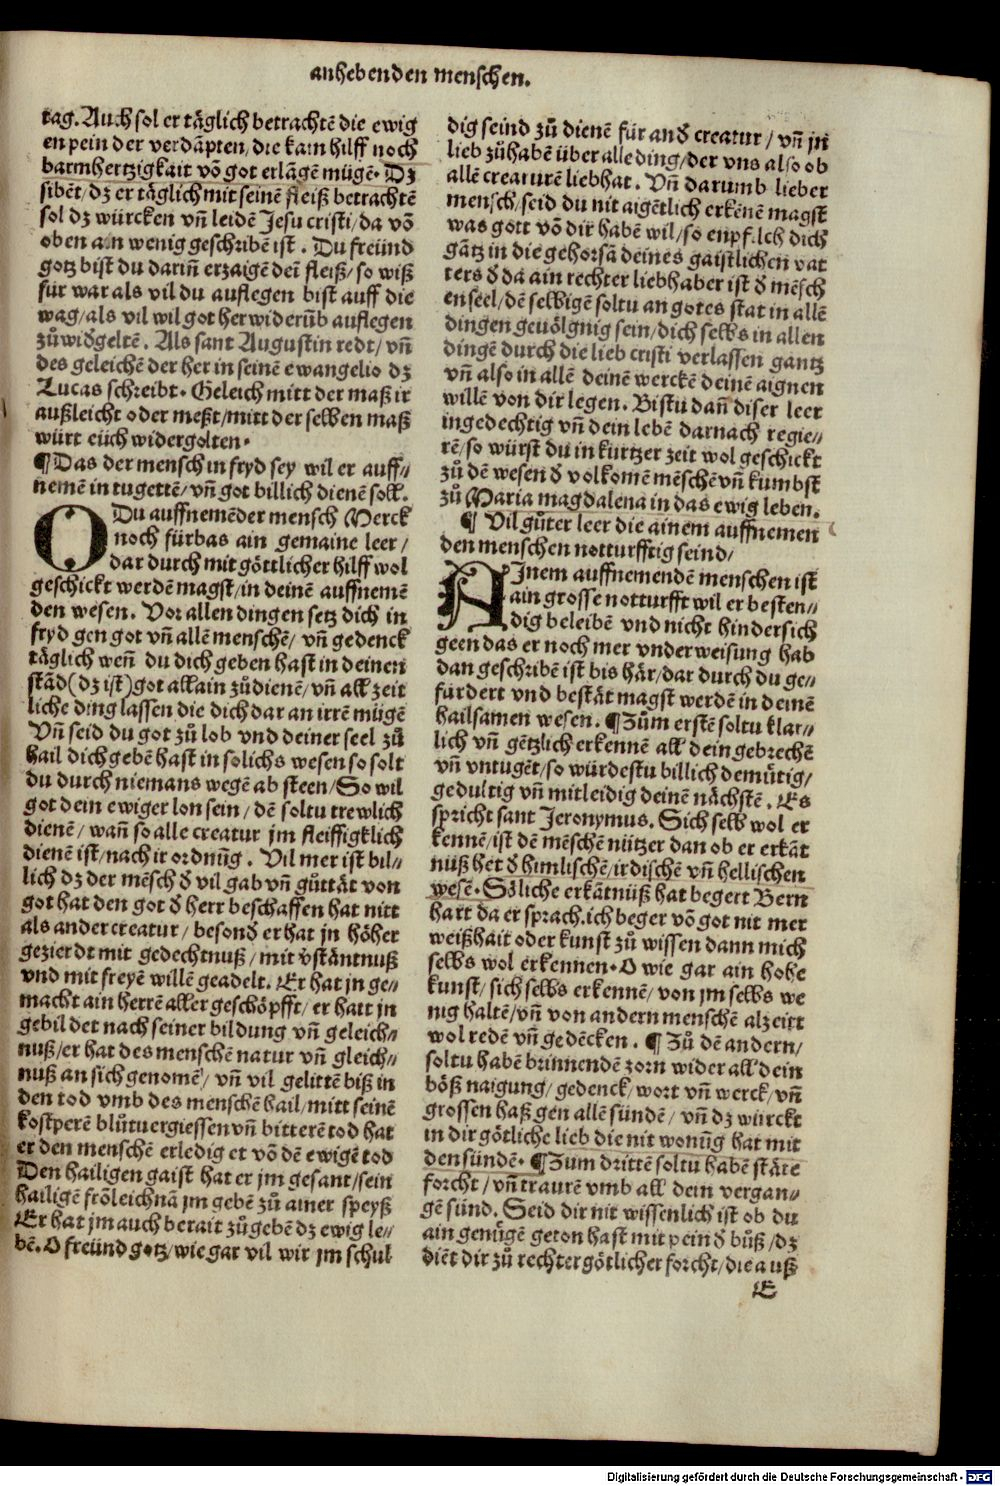 anhebenden menschen.
tag. Auch sol er täglich betrachtē die ewig
en pein der verdāpten/ die kain hilff noch
barmhertzigkait vō got erlāgē mügē. Dz
sibēt/ dz er täglich mit seinē fleiß betrachtē
sol dz würcken vnd leidē Jesu cristi/ da vō
oben ain wenig geschribē ist. Du freünd
gotz bist du darinn erzaigē deī fleiß/ so wiß
für war als vil du auflegen bist auff die
wag/ als vil wil got her widerūb auflegen
zůwiđgeltē. Als sant Augustin redt/ vñ
des geleichē der her in seinē ewangelio dz
Lucas schreibt. Geleich mitt der maß ir
außleicht oder meßt/ mitt der selben maß
würt eüch widergolten.
¶ Das der mensch in fryd sey wil er auff⸗
nemē in tugettē/ vñ got billich dienē soll.
O Du auffnemēder mensch Merck
noch fürbas ain gemaine leer/
dar durch mit göttlicher hilff wol
geschickt werdē magst/ in deinē auffnemē
den wesen. Vor allen dingen setz dich in
fryd gen got vñ allē menschē/ vñ gedenck
täglich weñ du dich geben hast in deinen
stād (dz ist) got allain zůdienē/ vñ all zeit
liche ding lassen die dich dar an irrē mügē
Vñ seid du got zů lob vnd deiner seel zů
hail dich gebē hast in solichs wesen so solt
du durch niemans wegē ab steen/ So wil
got dein ewiger lon sein/ dē soltu trewlich
dienē/ wañ so alle creatur jm fleissigklich
dienē ist/ nach ir ordnūg. Vil mer ist bil⸗
lich dz der mēsch đ vil gab vñ gůttät von
got hat den got đ herr beschaffen hat nitt
als ander creatur/ besonđ er hat jn höher
gezierdt mit gedechtnuß/ mit vstäntnuß
vnd mit freyē willē geadelt. Er hat jn ge⸗
macht ain herrē aller geschöpfft/ er hatt jn
gebildet nach seiner bildung vñ geleich⸗
nuß/ er hat des menschē natur vñ gleich⸗
nuß an sich genomē/ vñ vil gelittē biß in
den tod vmb des menschē hail/ mitt seinē
kostperē blůtuergiessen vñ bitterē tod hat
er den menschē erlediget vō dē ewigē tod
Den hailigen gaist hat er jm gesant/ sein
hailigē frōleichnā jm gebē zů ainer speyß
Er hat jm auch berait zůgebē dz ewig le⸗
bē. O freünd gotz/ wie gar vil wir jm schul
dig seind zů dienē für anđ creatur/ vñ jn
lieb zůhabē über alle ding/ der vns also ob
allē creaturē liebhat. Vñ darumb lieber
mensch/ seid du nit aigētlich erkēnē magst
was gott vō dir habē wil/ so enpfilch dich
gātz in die gehorsā deines gaistlichen vat
ters đ da ain rechter liebhaber ist đ mēsch
en seel/ dē selbigē soltu an gotes stat in allē
dingen geuölgnig sein/ dich selbs in allen
dingē durch die lieb cristi verlassen gantz
vñ also in allē deinē werckē deinē aignen
willē von dir legen. Bistu dañ diser leer
ingedechtig vñ dein lebē darnach regie⸗
rē/ so würst du in kurtzer zeit wol geschickt
zů dē wesen đ volkomē mēschē vñ kumbst
zů Maria magdalena in das ewig leben.
¶ Vil gůter leer die ainem auffnemen
den menschen notturfftig seind/
AInem auffnemendē menschen ist
ain grosse notturfft wil er besten⸗
dig beleibē vnd nicht hindersich
geen das er noch mer vnderweisung hab
dan geschribē ist bis här/ dar durch du ge⸗
fürdert vnd bestät magst werdē in deinē
hailsamen wesen. ¶ Zům erstē soltu klar⸗
lich vñ gētzlich erkennē all dein gebrechē
vñ vntugēt/ so würdestu billich demütig/
gedultig vñ mitleidig deinē nächstē. Es
spricht sant Jeronymus. Sich selb wol er
kennē/ ist dē mēschē nützer dan ob er erkāt
nüß het đ himlischē/ irdischē vñ hellischen
wesē. Söliche erkātnüß hat begert Bern
hart da er sprach. ich beger vō got nit mer
weißhait oder kunst zů wissen dann mich
selbs wol erkennen. O wie gar ain hohe
kunst/ sich selbs erkennē/ von jm selbs we
nig haltē/ vñ von andern menschē alzeit
wol redē vñ gedēcken. ¶ Zů dē andern/
soltu habē brinnendē zorn wider all dein
böß naigung/ gedenck/ wort vñ werck/ vñ
grossen haß gen allē sündē/ vñ dz würckt
in dir götliche lieb die nit wonūg hat mit
den sündē. ¶ Zum drittē soltu habē stäte
forcht/ vñ traurē vmb all dein vergan⸗
gē sünd. Seid dir nit wissenlich ist ob du
ain genůgē geton hast mit pein đ bůß/ dz
diēt dir zů rechter götlicher forcht/ die auß
E
Digitalisierung gefördert durch die Deutsche Forschungsgemeinschaft - DFG